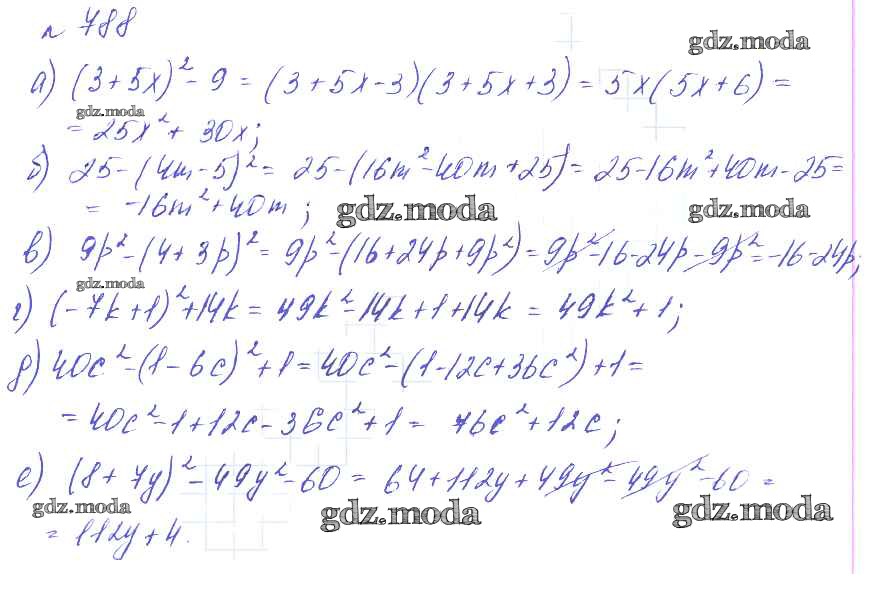 № 788
gdz.moda
а) (3+5x)² - 9 = (3+5x-3)(3+5x+3) = 5x(5x+6) =
gdz.moda
= 25x² + 30x;
б) 25-(4m-5)² = 25-(16m²-40m+25) = 25-16m²+40m-25=
= -16m²+40m;
gdz.moda
gdz.moda
в) 9p²-(4+3p)² = 9p²-(16+24p+9p²) = 9p²-16-24p-9p² = -16-24p;
gdz.moda
г) (-7k+1)²+14k = 49k²-14k+1+14k = 49k²+1;
д) 40c²-(1-6c)²+1 = 40c²-(1-12c+36c²)+1=
= 40c²-1+12c-36c²+1 = 76c²+12c;
е) (8+7y)²-49y²-60 = 64+112y+49y²-49y²-60 =
gdz.moda
gdz.moda
gdz.moda
= 112y+4.